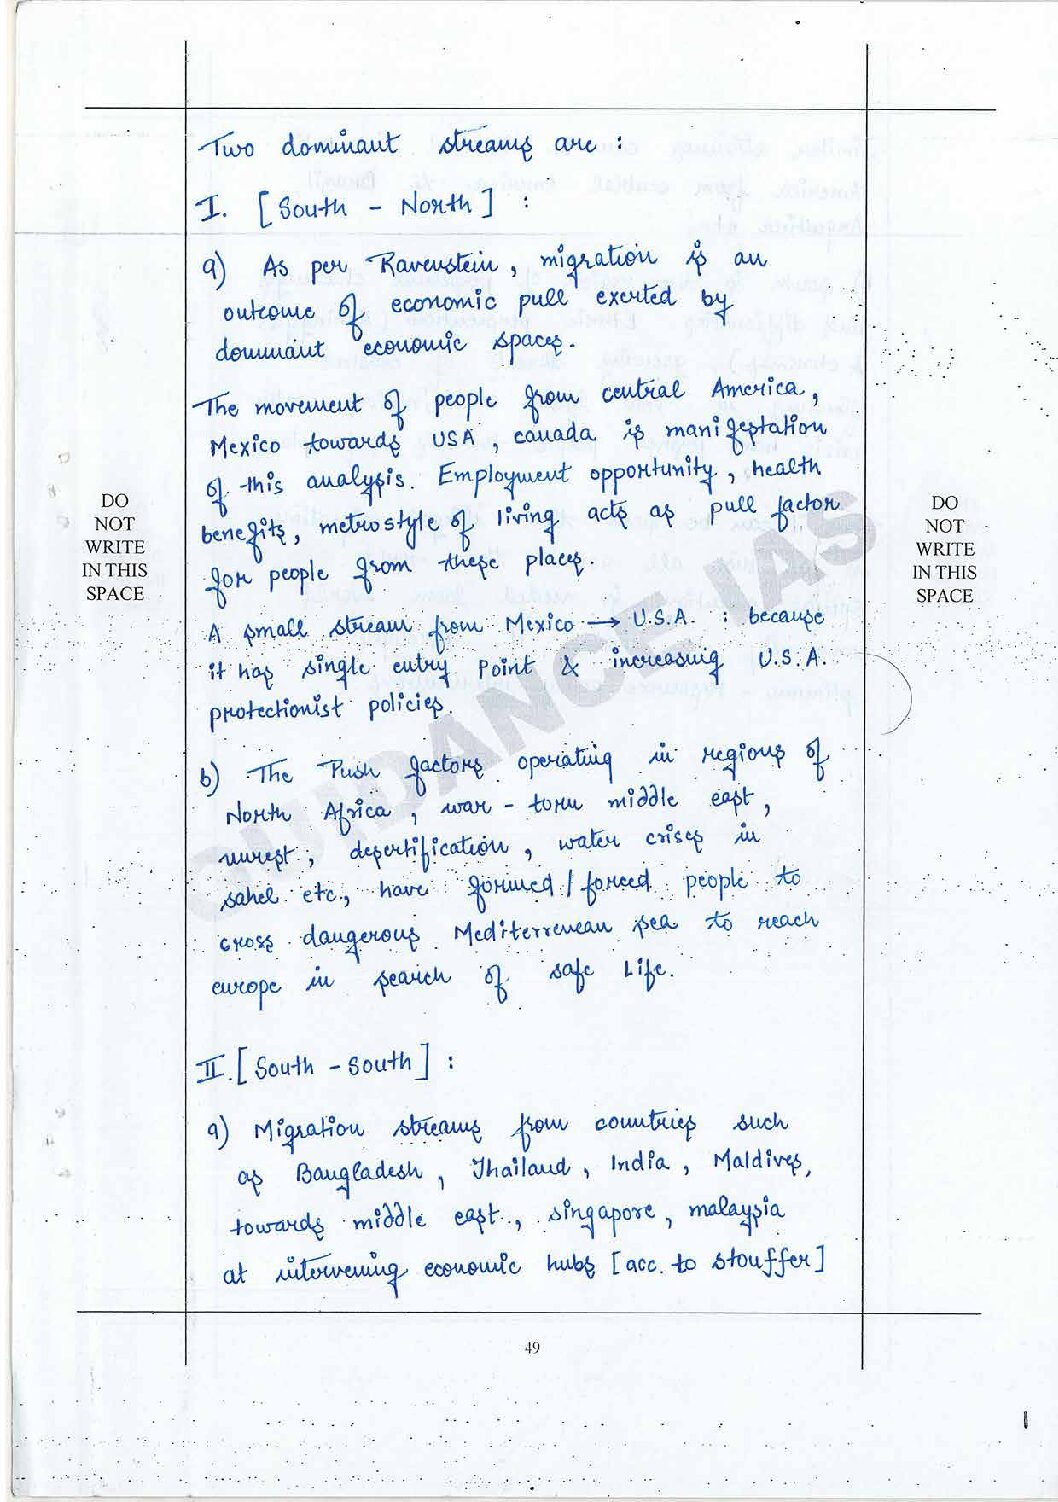 Two dominant streams are :
I. [South - North] :
a) As per Ravenstein, migration is an
outcome of economic pull exerted by
dominant economic spaces.
The movement of people from central America,
Mexico towards USA, canada is manifestation
of this analysis. Employment opportunity, health
benefits, metrostyle of living acts as pull factor
for people from these places.
A small stream from Mexico → U.S.A. : because
it has single entry Point & increasing U.S.A.
protectionist policies.
b) The Push factors operating in regions of
North Africa, war-torn middle east,
unrest, desertification, water crises in
sahel etc., have formed/forced people to
cross dangerous Mediterrenean sea to reach
europe in search of safe Life.
II. [South - South] :
a) Migration streams from countries such
as Bangladesh, Thailand, India, Maldives,
towards middle east, singapore, malaysia
at intervening economic hubs [acc. to stouffer]
DO
NOT
WRITE
IN THIS
SPACE
DO
NOT
WRITE
IN THIS
SPACE
GUIDANCE IAS
49